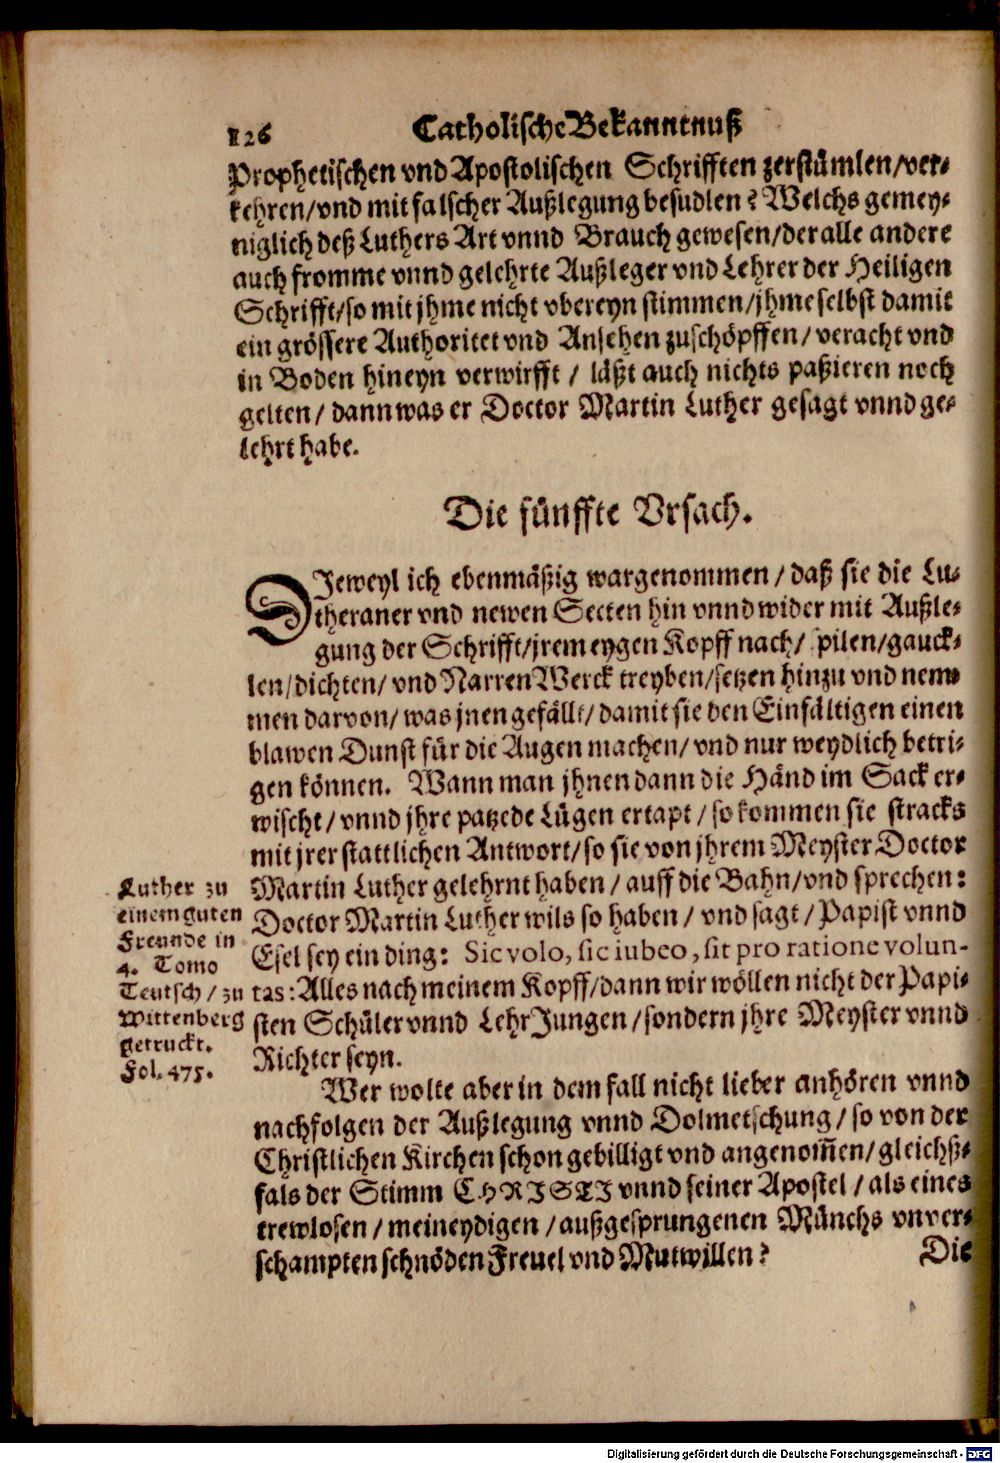 126 Catholische Bekanntnuß
Prophetischen vnd Apostolischen Schrifften zerstümlen/ver-
kehren/vnd mit falscher Außlegung besudlen? Welchs gemey-
niglich deß Luthers Art vnnd Brauch gewesen/der alle andere
auch fromme vnnd gelehrte Außleger vnd Lehrer der Heiligen
Schrifft/so mit jhme nicht vbereyn stimmen/jhme selbst damit
ein grössere Authoritet vnd Ansehen zuschöpffen/veracht vnd
in Boden hineyn verwirfft / läßt auch nichts paßieren noch
gelten/ dann was er Doctor Martin Luther gesagt vnnd ge-
lehrt habe.
Die fünffte Vrsach.
DJeweyl ich ebenmäßig wargenommen/daß sie die Lu-
theraner vnd newen Secten hin vnnd wider mit Außle-
gung der Schrifft/jrem eygen Kopff nach/ spilen/gauck-
len/dichten/ vnd Narren Werck treyben/setzen hinzu vnd nem-
men darvon/ was jnen gefällt/damit sie den Einfältigen einen
blawen Dunst für die Augen machen/ vnd nur weydlich betri-
gen können. Wann man jhnen dann die Händ im Sack er-
wischt/ vnnd jhre patzede Lügen ertapt/so kommen sie stracks
mit jrer stattlichen Antwort/so sie von jhrem Meyster Doctor
Martin Luther gelehrnt haben/ auff die Bahn/vnd sprechen:
Doctor Martin Luther wils so haben/ vnd sagt/Papist vnnd
Esel sey ein ding: Sic volo, sic iubeo, sit pro ratione volun-
tas: Alles nach meinem Kopff/dann wir wöllen nicht der Papi-
sten Schüler vnnd LehrJungen/sondern jhre Meyster vnnd
Richter seyn.
Luther zu
einem guten
Freunde in
4. Tomo
Teutsch / zu
Wittenberg
getruckt.
Fol. 475.
Wer wolte aber in dem fall nicht lieber anhören vnnd
nachfolgen der Außlegung vnnd Dolmetschung/so von der
Christlichen Kirchen schon gebilligt vnd angenom̃en/gleichß-
fals der Stimm CHRISTI vnnd seiner Apostel/als eines
trewlosen/meineydigen/außgesprungenen Münchs vnver-
schampten schnöden Freuel vnd Mutwillen?
Die
Digitalisierung gefördert durch die Deutsche Forschungsgemeinschaft - DFG